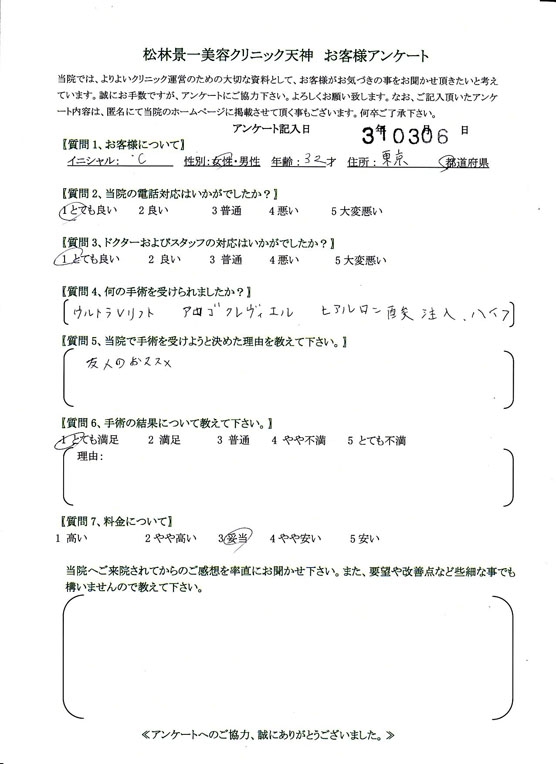 松林景一美容クリニック天神　お客様アンケート
当院では、よりよいクリニック運営のための大切な資料として、お客様がお気づきの事をお聞かせ頂きたいと考え
ています。誠にお手数ですが、アンケートにご協力下さい。よろしくお願い致します。なお、ご記入頂いたアンケ
ート内容は、匿名にて当院のホームページに掲載させて頂く事もございます。何卒ご了承下さい。
アンケート記入日　310306　年　月　日
〖質問1、お客様について〗
イニシャル：　C　性別：女性・男性　年齢：32才　住所：東京　都道府県
〖質問2、当院の電話対応はいかがでしたか？〗
1 とても良い　2 良い　3 普通　4 悪い　5 大変悪い
〖質問3、ドクターおよびスタッフの対応はいかがでしたか？〗
1 とても良い　2 良い　3 普通　4 悪い　5 大変悪い
〖質問4、何の手術を受けられましたか？〗
ウルトラVリフト　アロゴ クレヴィエル　ヒアルロン酸 注入、ハイフ
〖質問5、当院で手術を受けようと決めた理由を教えて下さい。〗
友人のおススメ
〖質問6、手術の結果について教えて下さい。〗
1 とても満足　2 満足　3 普通　4 やや不満　5 とても不満
理由：
〖質問7、料金について〗
1 高い　2 やや高い　3 妥当　4 やや安い　5 安い
当院へご来院されてからのご感想を率直にお聞かせ下さい。また、要望や改善点など些細な事でも
構いませんので教えて下さい。
≪アンケートへのご協力、誠にありがとうございました。≫